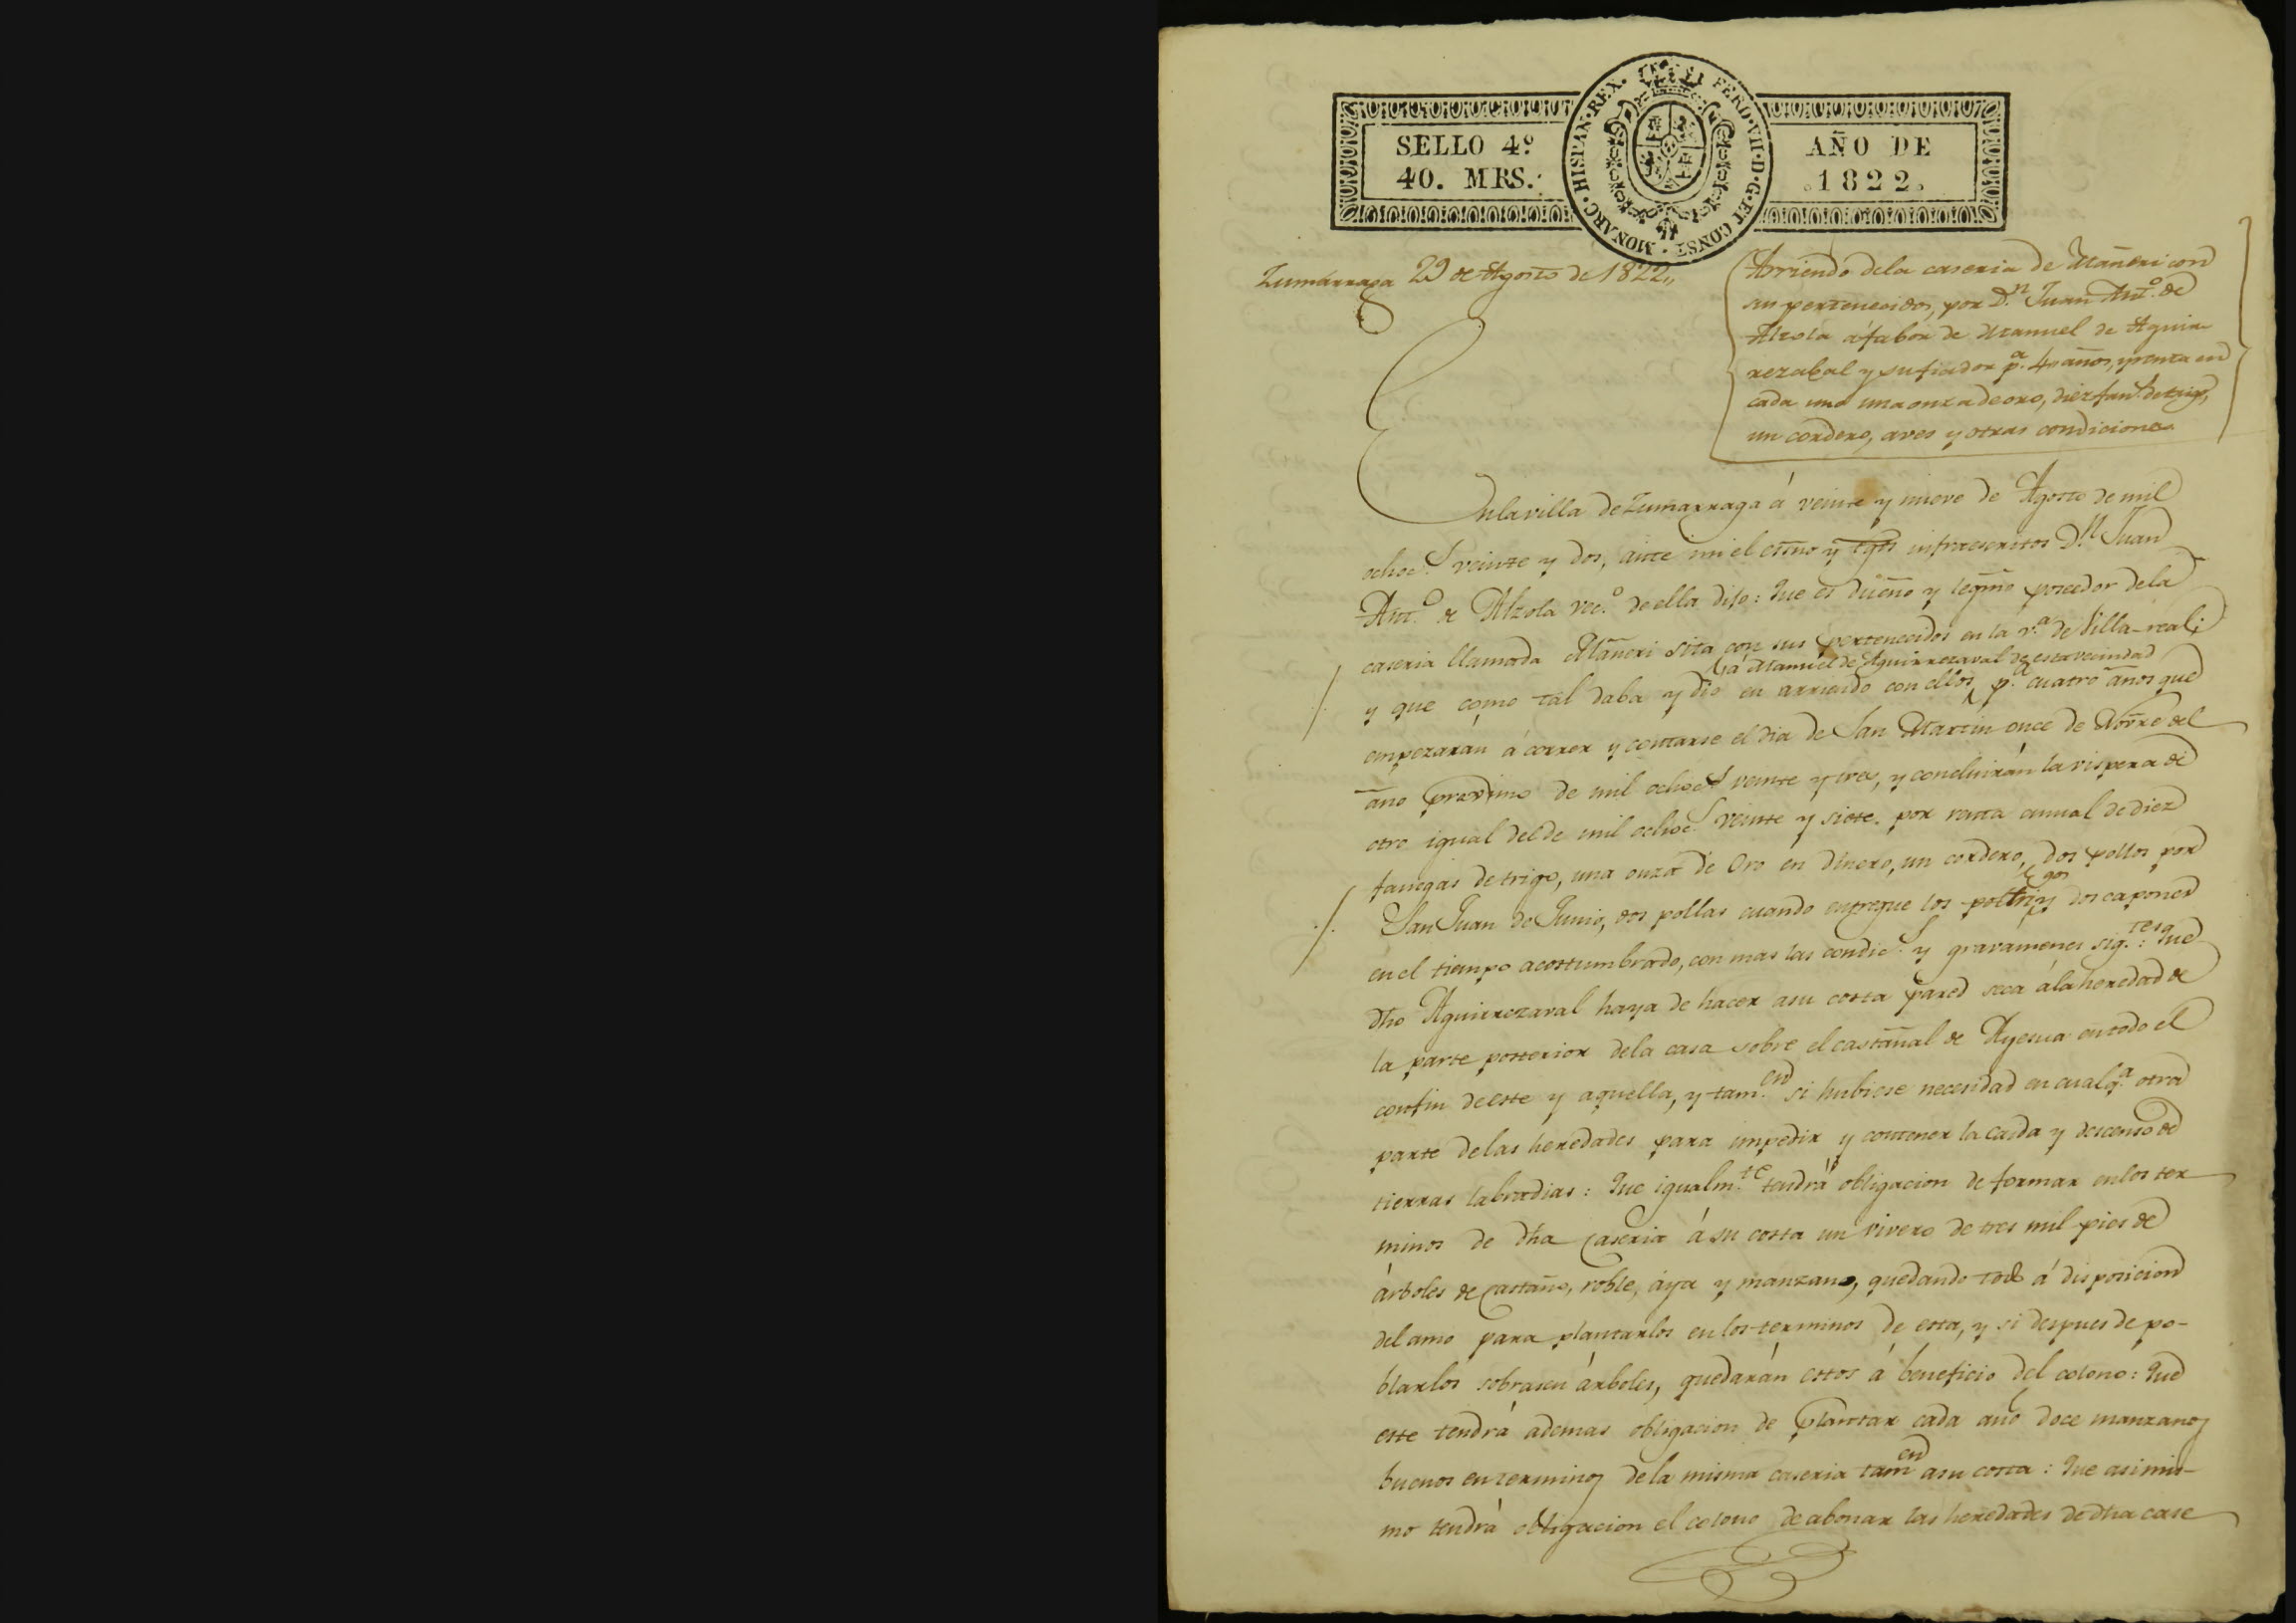 SELLO 4º
40. MRS.
MONARC · HISPAN · REX · FERD · VII · D · G · ET CONST ·
AÑO DE
1822.
Zumárraga 29 de Agosto de 1822,,
Arriendo dela caseria de Mañeri con
sus pertenecidos, por D.n Juan Ant.o de
Alzola á fabor de Manuel de Aguir-
rezabal y su fiador p.a 4 años, y renta en
cada uno una onza de oro, diez fan.s de trigo,
un cordero, aves y otras condiciones
En la villa de Zumarraga á veinte y nueve de Agosto de mil
ochoc.s veinte y dos, ante mi el esno y tgos infraescritos D.n Juan
Ant.o de Alzola vec.o de ella dijo: Que es dueño y legmo poseedor dela
caseria llamada Mañeri sita con sus pertenecidos en la v.a de Villa-real;
á Manuel de Aguirrezaval de esta vecindad
y que como tal daba y dio en arriendo con ellos p.a cuatro años que
empezarán á correr y contarse el dia de San Martin once de Nobre del
año proximo de mil ochoc.s veinte y tres, y concluirán la vispera de
otro igual del de mil ochoc.s veinte y siete. por renta annual de diez
fanegas de trigo, una onza de Oro en dinero, un cordero, dos pollos por
gos
San Juan de Junio, dos pollas cuando entregue los tri y dos capones
en el tiempo acostumbrado, con mas las condic.s y gravámenes sig.tes: Que
dho Aguirrezaval haya de hacer asu costa pared seca á la heredad de
la parte posterior dela casa sobre el castañal de Ayesua en todo el
confin de este y aquella, y tam.en si hubiese necesidad en cualq.a otra
parte delas heredades para impedir y contener la caida y descenso de
tierras labradias: Que igualm.te tendrá obligacion de formar en los ter
minos de dha caseria á su costa un vivero de tres mil pies de
árboles de castaño, roble, áya y manzano, quedando todo á disposicion
del amo para plantarlos en los terminos de esta, y si despues de po-
blarlos sobrasen árboles, quedarán estos á beneficio del colono: Que
este tendrá ademas obligacion de plantar cada año doce manzanos
buenos en terminos de la misma caseria tam.en asu costa: Que asimis-
mo tendrá obligacion el colono de abonar las heredades de dha case